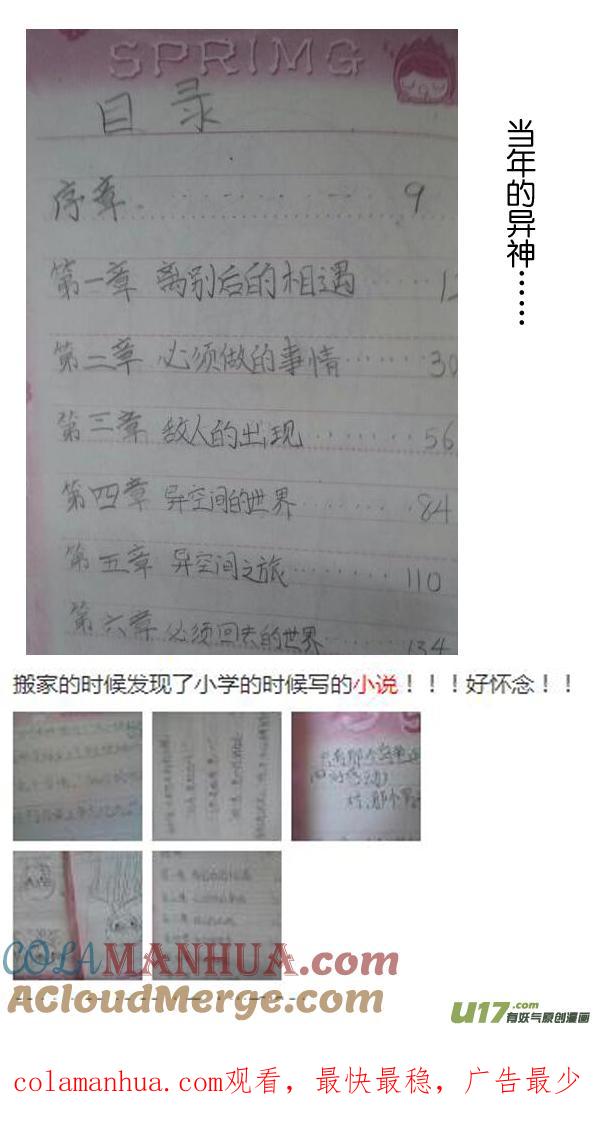 SPRIMG
目录
序章..........9
第一章 离别后的相遇......12
第二章 必须做的事情......30
第三章 敌人的出现........56
第四章 异空间的世界.......84
第五章 异空间之旅........110
第六章 必须回去的世界......134
当年的异神……
搬家的时候发现了小学的时候写的小说！！！好怀念！！
COLAMANHUA.com
ACloudMerge.com
U17.com
有妖气原创漫画
colamanhua.com观看，最快最稳，广告最少